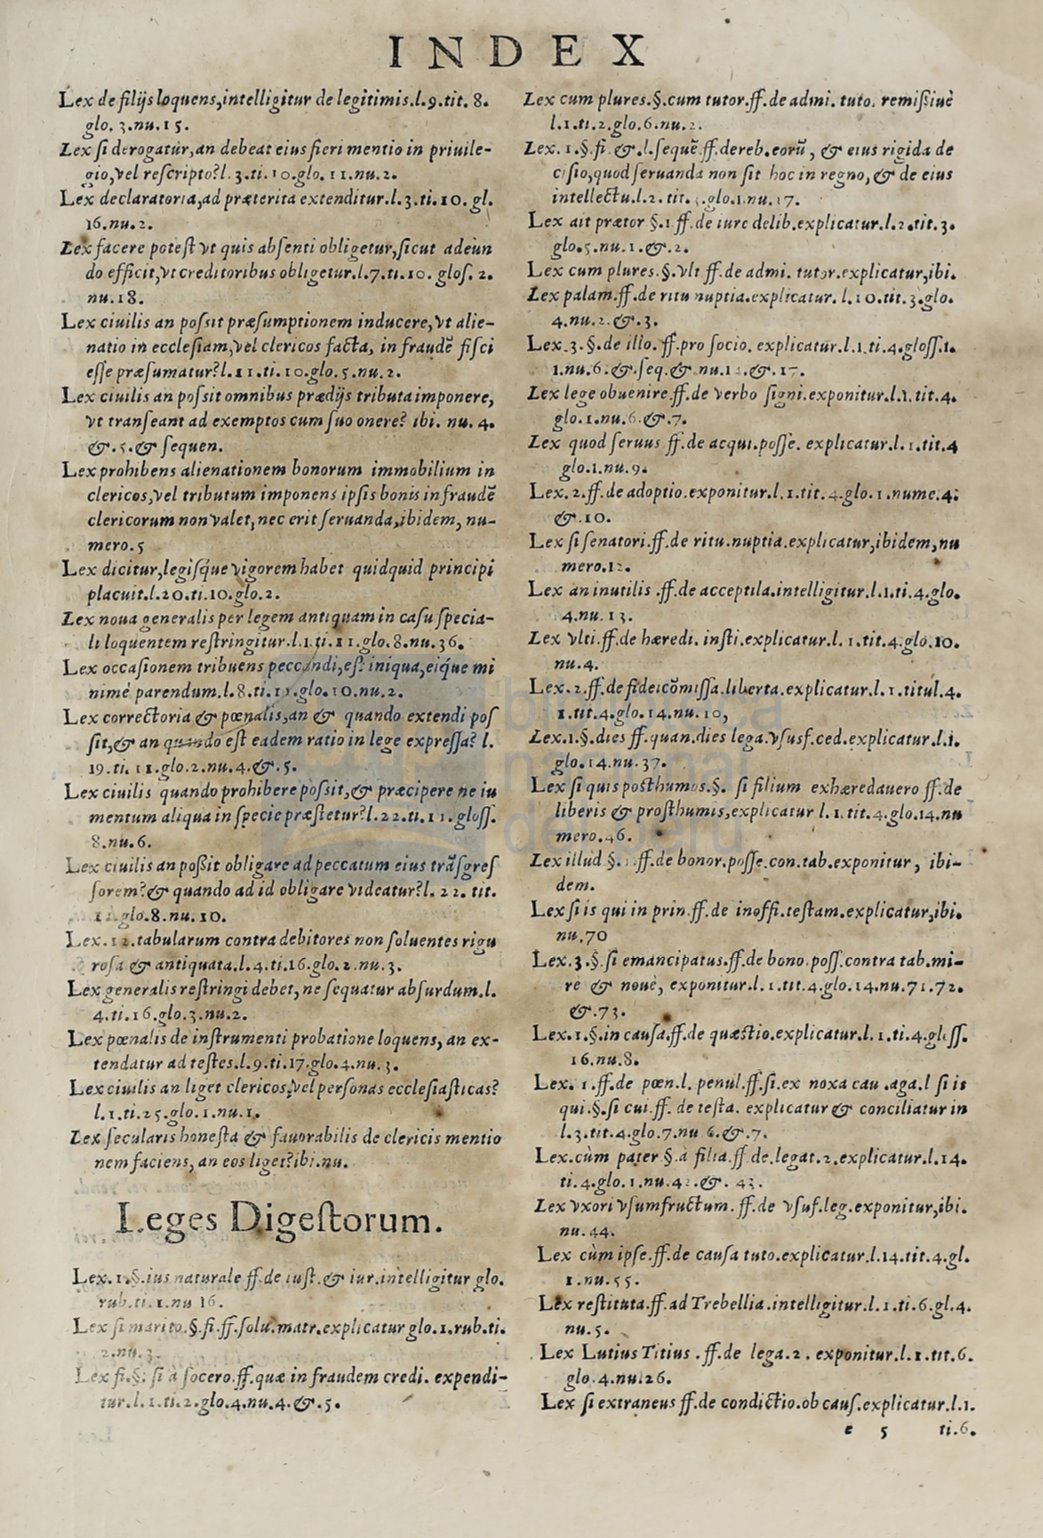 INDEX
Lex de filijs loquens,intelligitur de legitimis.l.9.tit. 8.
glo. 3.nu.15.
Lex si derogatur,an debeat eius fieri mentio in priuile-
gio,vel rescripto?l. 3.ti.10.glo. 11.nu.2.
Lex declaratoria,ad præterita extenditur.l.3.ti.10. gl.
16.nu.2.
Lex facere potest vt quis absenti obligetur,sicut adeùn
do efficit,vt creditoribus obligetur.l.7.ti.10. glos. 2.
nu.18.
Lex ciuilis an possit præsumptionem inducere,vt alie-
natio in ecclesiam,vel clericos facta, in fraudẽ fisci
esse præsumatur?l.11.ti.10.glo.5.nu.2.
Lex ciuilis an possit omnibus prædijs tributa imponere,
vt transeant ad exemptos cum suo onere? ibi. nu. 4.
&.5.& sequen.
Lex prohibens alienationem bonorum immobilium in
clericos,vel tributum imponens ipsis bonis in fraudẽ
clericorum non valet, nec erit seruanda,ibidem, nu-
mero.5
Lex dicitur,legisq́ue vigorem habet quidquid principi
placuit.l.20.ti.10.glo.2.
Lex noua generalis per legem antiquam in casu specia-
li loquentem restringitur.l.1.ti.11.glo.8.nu.36.
Lex occasionem tribuens peccandi,est iniqua,eiq́ue mi
nimè parendum.l.8.ti.11.glo.10.nu.2.
Lex correctoria & pœnalis,an & quando extendi pos
sit,& an quando est eadem ratio in lege expressa? l.
19.ti. 11.glo.2.nu.4.&.5.
Lex ciuilis quando prohibere possit,& præcipere ne iu
mentum aliqua in specie præstetur?l.22.ti.11.gloss.
8.nu.6.
Lex ciuilis an possit obligare ad peccatum eius trãsgres
sorem?& quando ad id obligare videatur?l. 22. tit.
11.glo.8.nu.10.
Lex.12.tabularum contra debitores non soluentes rigu
rosa & antiquata.l.4.ti.16.glo.2.nu.3.
Lex generalis restringi debet, ne sequatur absurdum.l.
4.ti.16.glo.3.nu.2.
Lex pœnalis de instrumenti probatione loquens, an ex-
tendatur ad testes.l.9.ti.17.glo.4.nu.3.
Lex ciuilis an liget clericos,vel personas ecclesiasticas?
l.1.ti.25.glo.1.nu.1.
Lex secularis honesta & fauorabilis de clericis mentio
nem faciens, an eos liget?ibi.nu.
Leges Digestorum.
Lex.1.§.ius naturale ff.de iust.& iur.intelligitur glo.
rub.ti.1.nu 16.
Lex si marito.§.fi.ff.solu.matr.explicatur glo.1.rub.ti.
2.nu.3.
Lex fi.§. si à socero.ff.quæ in fraudem credi. expendi-
tur.l.1.ti.2.glo.4.nu.4.&.5.
Lex cum plures.§.cum tutor.ff.de admi. tuto. remissiuè
l.1.ti.2.glo.6.nu.2.
Lex. 1.§.fi.&.l.sequẽ.ff.de reb.eorũ, & eius rigida de
cisio,quod seruanda non sit hoc in regno,& de eius
intellectu.l.2. tit. .glo.1.nu.17.
Lex ait prætor §.1 ff.de iure delib.explicatur.l.2.tit.3.
glo.5.nu.1.&.2.
Lex cum plures.§.vlt ff.de admi. tutor.explicatur,ibi.
Lex palam.ff.de ritu nuptia.explicatur. l.10.tit.3.glo.
4.nu.2.&.3.
Lex.3.§.de illo.ff.pro socio. explicatur.l.1.ti.4.gloss.1.
1.nu.6.&.seq.&.nu.12.&.17.
Lex lege obuenire.ff.de verbo signi.exponitur.l.1.tit.4.
glo.1.nu.6.&.7.
Lex quod seruus ff.de acqui.posse. explicatur.l.1.tit.4
glo.1.nu.9.
Lex.2.ff.de adoptio.exponitur.l.1.tit.4.glo.1.nume.4.
&.10.
Lex si senatori.ff.de ritu.nuptia.explicatur,ibidem,nu
mero.12.
Lex an inutilis .ff.de acceptila.intelligitur.l.1.ti.4.glo.
4.nu.13.
Lex vlti.ff.de hæredi. insti.explicatur.l.1.tit.4.glo.10.
nu.4.
Lex.2.ff.de fideicõmissa.liberta.explicatur.l.1.titul.4.
1.tit.4.glo.14.nu.10,
Lex.1.§.dies ff.quan.dies lega.vsusf.ced.explicatur.l.1.
glo.14.nu.37.
Lex si quis posthumos.§. si filium exhæredauero ff.de
liberis & posthumis,explicatur l.1.tit.4.glo.14.nu
mero.46.
Lex illud §. .ff.de bonor.posse.con.tab.exponitur, ibi-
dem.
Lex si is qui in prin.ff.de inoffi.testam.explicatur,ibi.
nu.70
Lex.3.§.si emancipatus.ff.de bono.poss.contra tab.mi-
re & nouè, exponitur.l.1.tit.4.glo.14.nu.71.72.
&.73.
Lex.1.§.in causa.ff.de quæstio.explicatur.l.1.ti.4.gloss.
16.nu.8.
Lex. 1.ff.de pœn.l. penul.ff.si.ex noxa cau .aga.l si is
qui.§.si cui.ff. de testa. explicatur & conciliatur in
l.3.tit.4.glo.7.nu 6.&.7.
Lex.cùm pater §.à filia.ff.de.legat.2.explicatur.l.14.
ti.4.glo.1.nu.42.&. 43.
Lex vxori vsumfructum. ff.de vsuf.leg.exponitur,ibi.
nu.44.
Lex cùm ipse.ff.de causa tuto.explicatur.l.14.tit.4.gl.
1.nu.55.
Lex restituta.ff.ad Trebellia.intelligitur.l.1.ti.6.gl.4.
nu.5.
Lex Lutius Titius .ff.de lega.2. exponitur.l.1.tit.6.
glo.4.nu.26.
Lex si extraneus ff.de condictio.ob caus.explicatur.l.1.
e 5 ti.6.
biblioteca
nacional
del perú